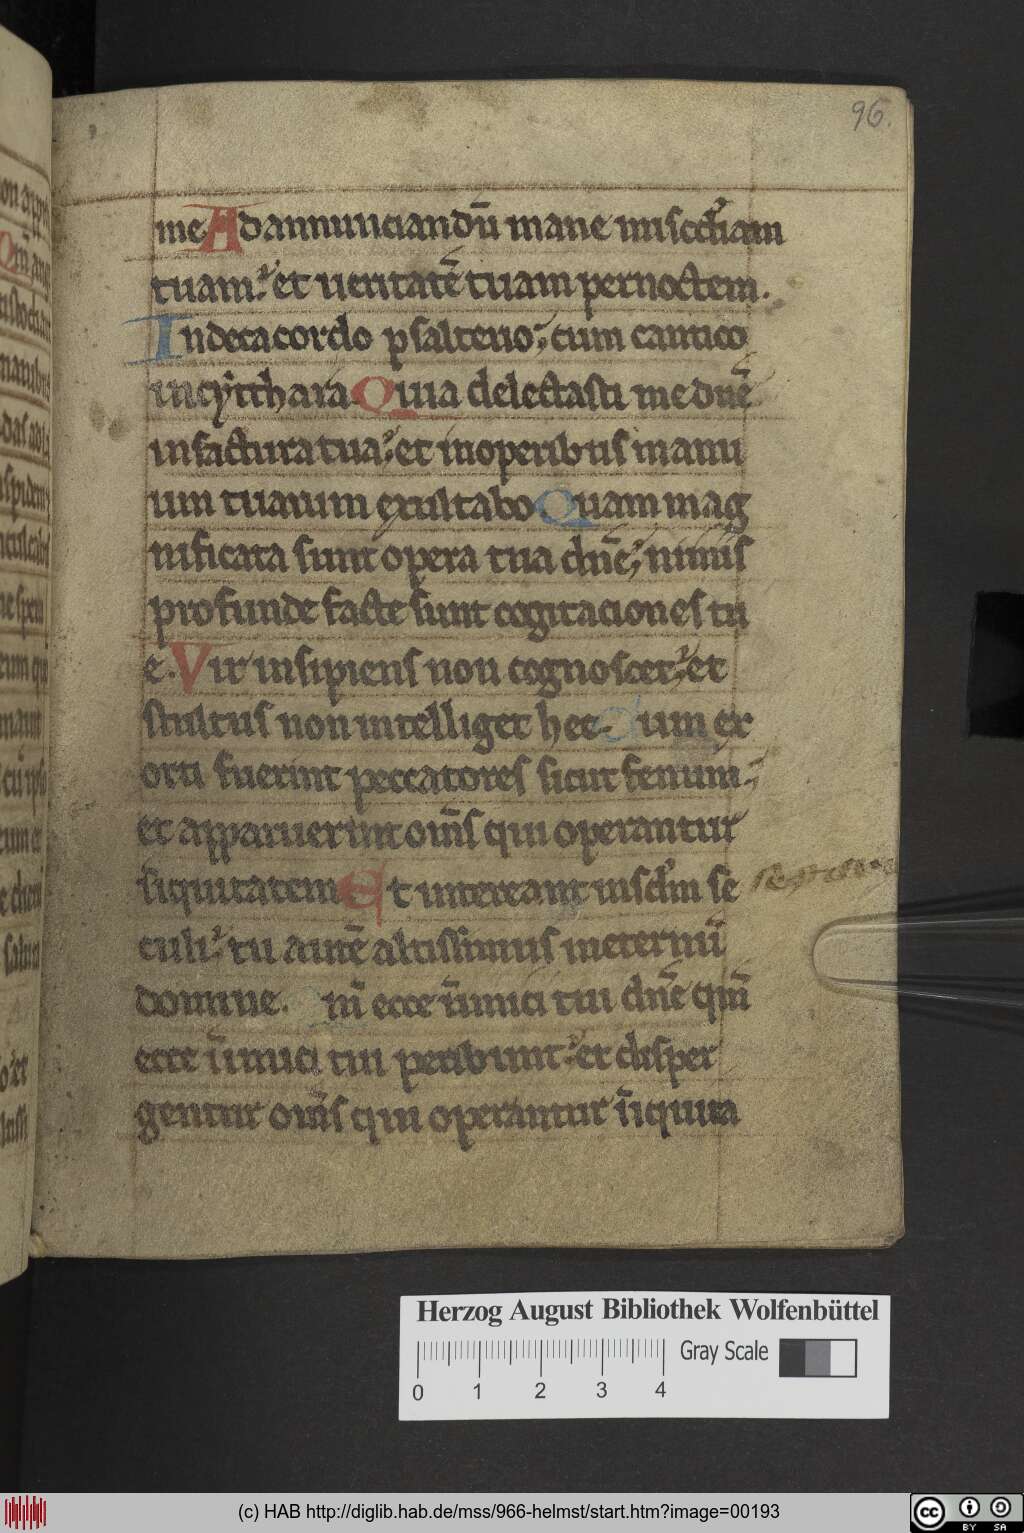 96.
me Adannunciandū mane misc̄diam
tuam: et ueritatē tuam per noctem.
In decacordo psalterio: cum cantico
in cythara Quia delectasti me dn̄e
in factura tua: et in operibus manu
um tuarum exultabo Quam mag
nificata sunt opera tua dn̄e: nimis
profunde facte sunt cogitaciones tu
e. Vir insipiens non cognoscet: et
stultus non intelliget hec Cum ex
orti fuerint peccatores sicut fenum:
et apparuerint om̄s qui operantur
iniquitatem Et intereant in sc̄lm se
culi: tu autē altissimus in eternū
domine. nm̄ ecce inimici tui dn̄e qm̄
ecce inimici tui peribunt: et disper
gentur om̄s qui operantur iniquita
Herzog August Bibliothek Wolfenbüttel
Gray Scale
0 1 2 3 4
(c) HAB http://diglib.hab.de/mss/966-helmst/start.htm?image=00193
cc BY SA